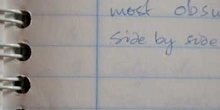 most obsu
side by side